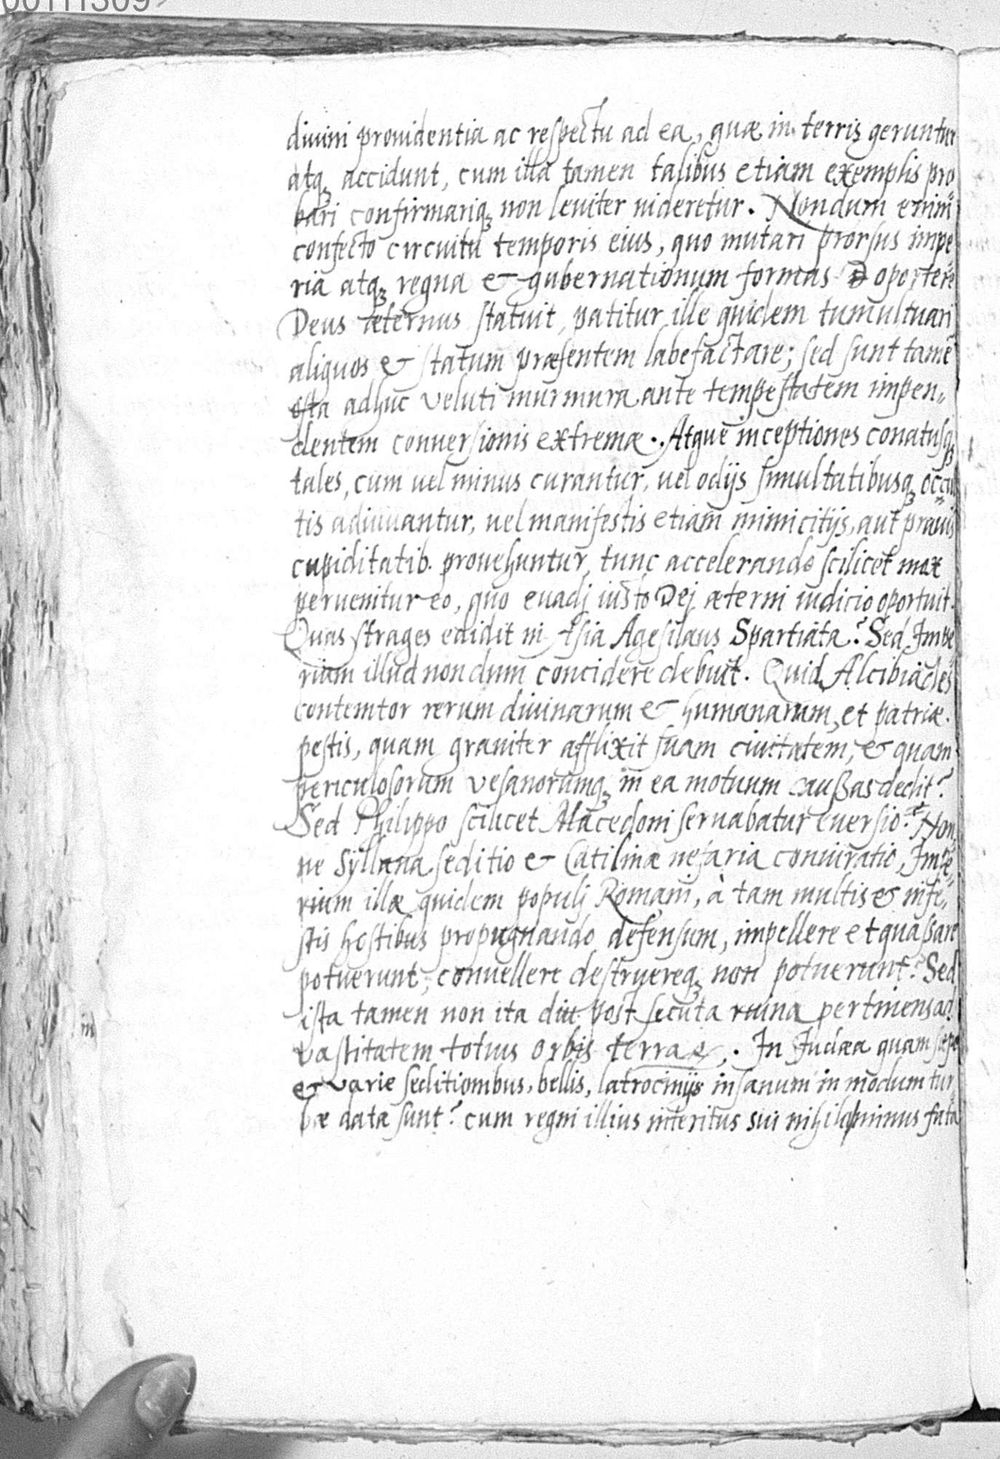 00111309
diuini prouidentia ac respectu ad ea, quæ in terris geruntur
atq accidunt, cum illa tamen talibus etiam exemplis pro
bari confirmariq non leuiter uideretur. Nondum enim
confecto circuitu temporis eius, quo mutari prorsus impe
ria atq regna & gubernationum formas oportere
Deus æternus statuit, patitur ille quidem tumultuari
aliquos & statum præsentem labefactare; sed sunt tamẽ
ista adhuc veluti murmura ante tempestatem impen„
dentem conuersionis extremæ. Atque inceptiones conatusq
tales, cum uel minus curantur, uel odijs simultatibusq occul
tis adiuuantur, uel manifestis etiam inimicitijs, aut prauis
cupiditatib. prouehuntur, tunc accelerando scilicet mox
peruenitur eo, quo euadi iusto Dei æterni iudicio oportuit.
Quas strages edidit in Asia Agesilaus Spartiata? Sed Impe
rium illud nondum concidere debuit. Quid Alcibiades
contemtor rerum diuinarum & humanarum, et patriæ
pestis, quam grauiter afflixit suam ciuitatem, & quam
periculosorum vesanorumq in ea motuum caußas dedit?
Sed Philippo scilicet Macedoni seruabatur euersio. Non„
ne Syllana seditio & Catilinæ nefaria coniuratio, Impe„
rium illæ quidem populi Romani, à tam multis & infe„
stis hostibus propugnando defensum, impellere et quaßare
potuerunt, conuellere destruereq non potuerunt? Sed
ista tamen non ita diu post secuta ruina pertinens ad
vastitatem totius orbis terræ. In Iudæa quam sæpe
& varie seditionibus, bellis, latrocinijs insanum in modum tur
bæ datæ sunt? cum regni illius interitus sui nihilominus fata